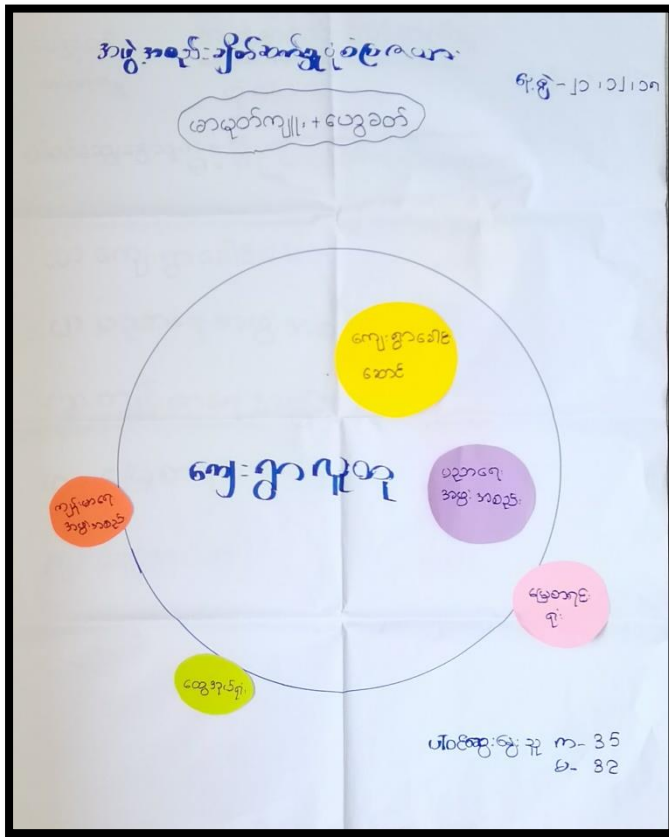 အဖွဲ့အစည်းချိတ်ဆက်မှုပုံစံပြဇယား
ရေးဆွဲ - ၂၁.၁၂.၁၈
ဖာမုတ်ကျူး + ပေဒွခတ်
ကျေးရွာခေါင်
ဆောင်
ကျေးရွာလူထု
ပညာရေး
အဖွဲ့အစည်း
ကျန်းမာရေ
အဖွဲ့အစည်း
မြေစာရင်း
ရုံး
ထွေအုပ်ရုံး
ပါဝင်ဆွေးနွေးသူ က - 35
မ - 32